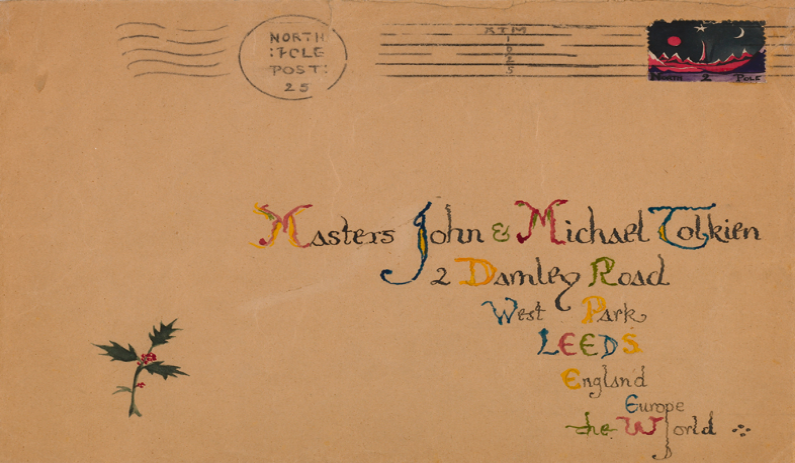 NORTH
POST:
25
North 2 Pole
Masters John & Michael Tolkien
2 Darnley Road
West Park
LEEDS
England
Europe
the World